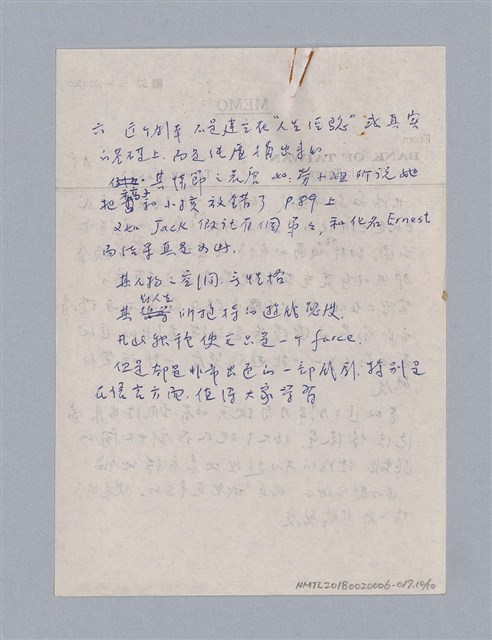 六 这个剧本 不是建立在"人生经验"或真实
的基础上,而是凭虚構出来的
其情節之荒唐 如:劳小姐所说她
把 和小孩放錯了 P.89上
又如 Jack 假设有個弟弟,和化名 Ernest
而结果真是如此.
其人物:空洞,无性格
其 对人生 所抱持的遊戲態度.
凡此 種種 使它只是一个 farce.
但是却是非常出色的一部戲劇,特别是
在语言方面,值得大家学習
MEMO
BANK OF TAIWAN
NMTL20180020006-017.10/10